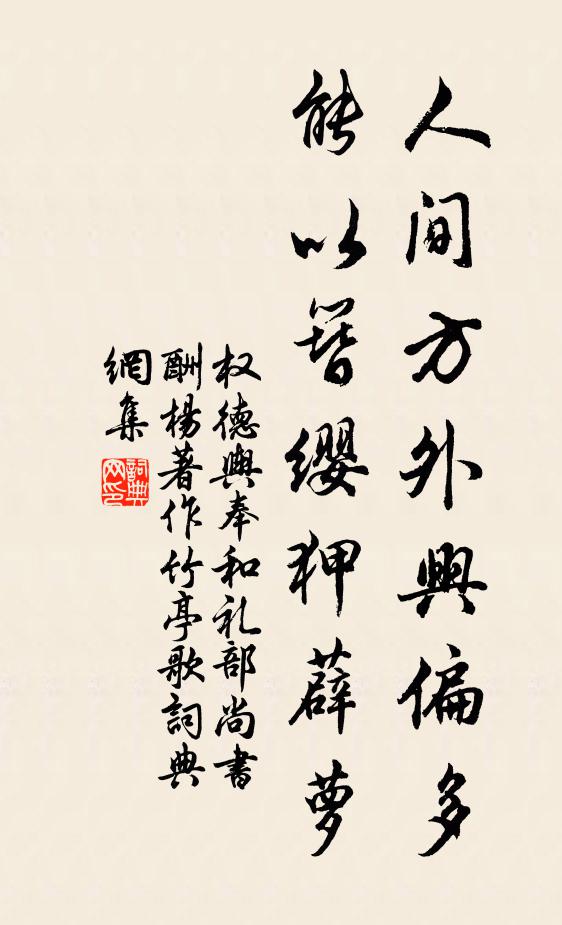 人间方外興偏多
能以簪缨狎薜萝
权德輿奉和礼部尚書
酬楊著作竹亭歌詞典
網集
詞典网印